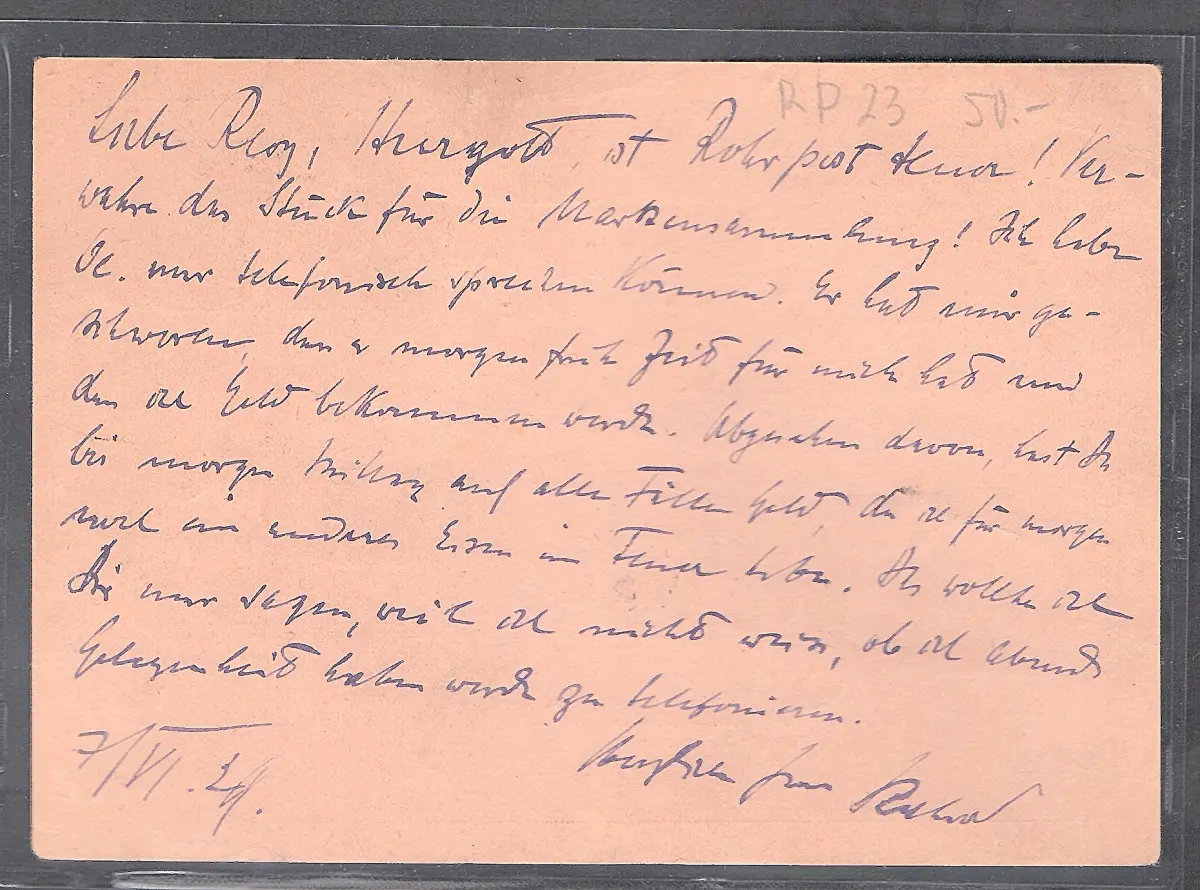 RP 23 50.-
Liebe Resy, Herrgott, ist Rohrpost teuer! Ver-
wahre das Stück für die Markensammlung! Ich habe
nur telefonisch sprechen können. Er hat mir ge-
schworen, dass er morgen früh Zeit für mich hat und
dass ich Geld bekommen werde. Abgesehen davon, hast Du
bis morgen Mittag auf alle Fälle Geld, da ich für morgen
noch ein anderes Eisen im Feuer habe. Das wollte ich
Dir nur sagen, weil ich nicht weiss, ob ich abends
Gelegenheit haben werde zu telefonieren.
Herzlichen
7/VI. 24.